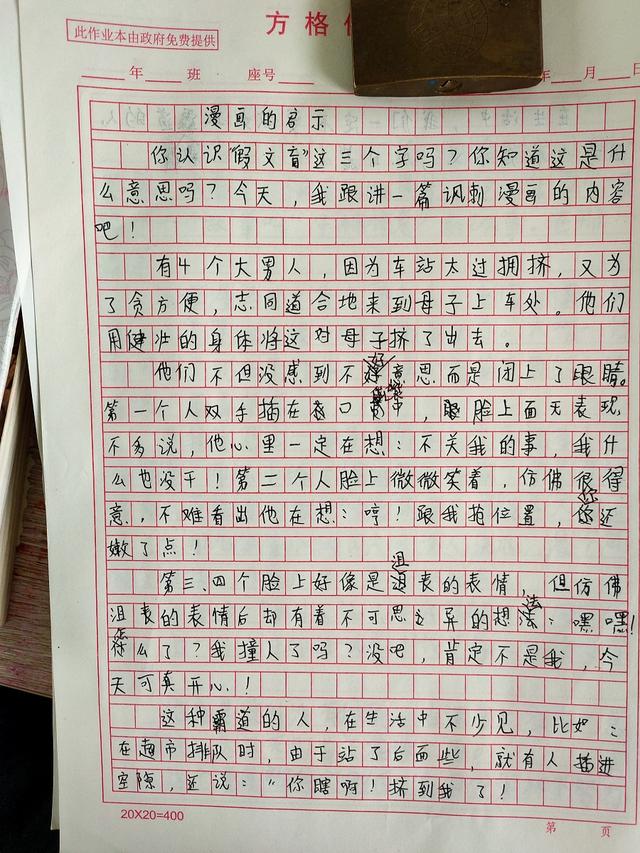 此作业本由政府免费提供
方格
年 班 座号 年 月 日
漫画的启示
你认识“假文盲”这三个字吗?你知道这是什
么意思吗?今天,我跟讲一篇讽刺漫画的内容
吧!
有4个大男人,因为车站太过拥挤,又为
了贪方便,志同道合地来到母子上车处。他们
用健壮的身体将这对母子挤了出去。
他们不但没感到不好意思而是闭上了眼睛。
第一个人双手插在口中,脸上面无表现,
不多说,他心里一定在想:不关我的事,我什
么也没干!第二个人脸上微微笑着,仿佛很得
意,不难看出他在想:哼!跟我抢位置,你还
嫩了点!
第三、四个脸上好像是沮丧的表情,但仿佛
沮丧的表情后却有着不可思之异的想法:嘿嘿!
怎么了?我撞人了吗?没吧,肯定不是我,今
天可真开心!
这种霸道的人,在生活中不少见,比如:
在超市排队时,由于站了后面些,就有人插进
空隙,还说:“你瞎啊!挤到我了!
20X20=400
第 页